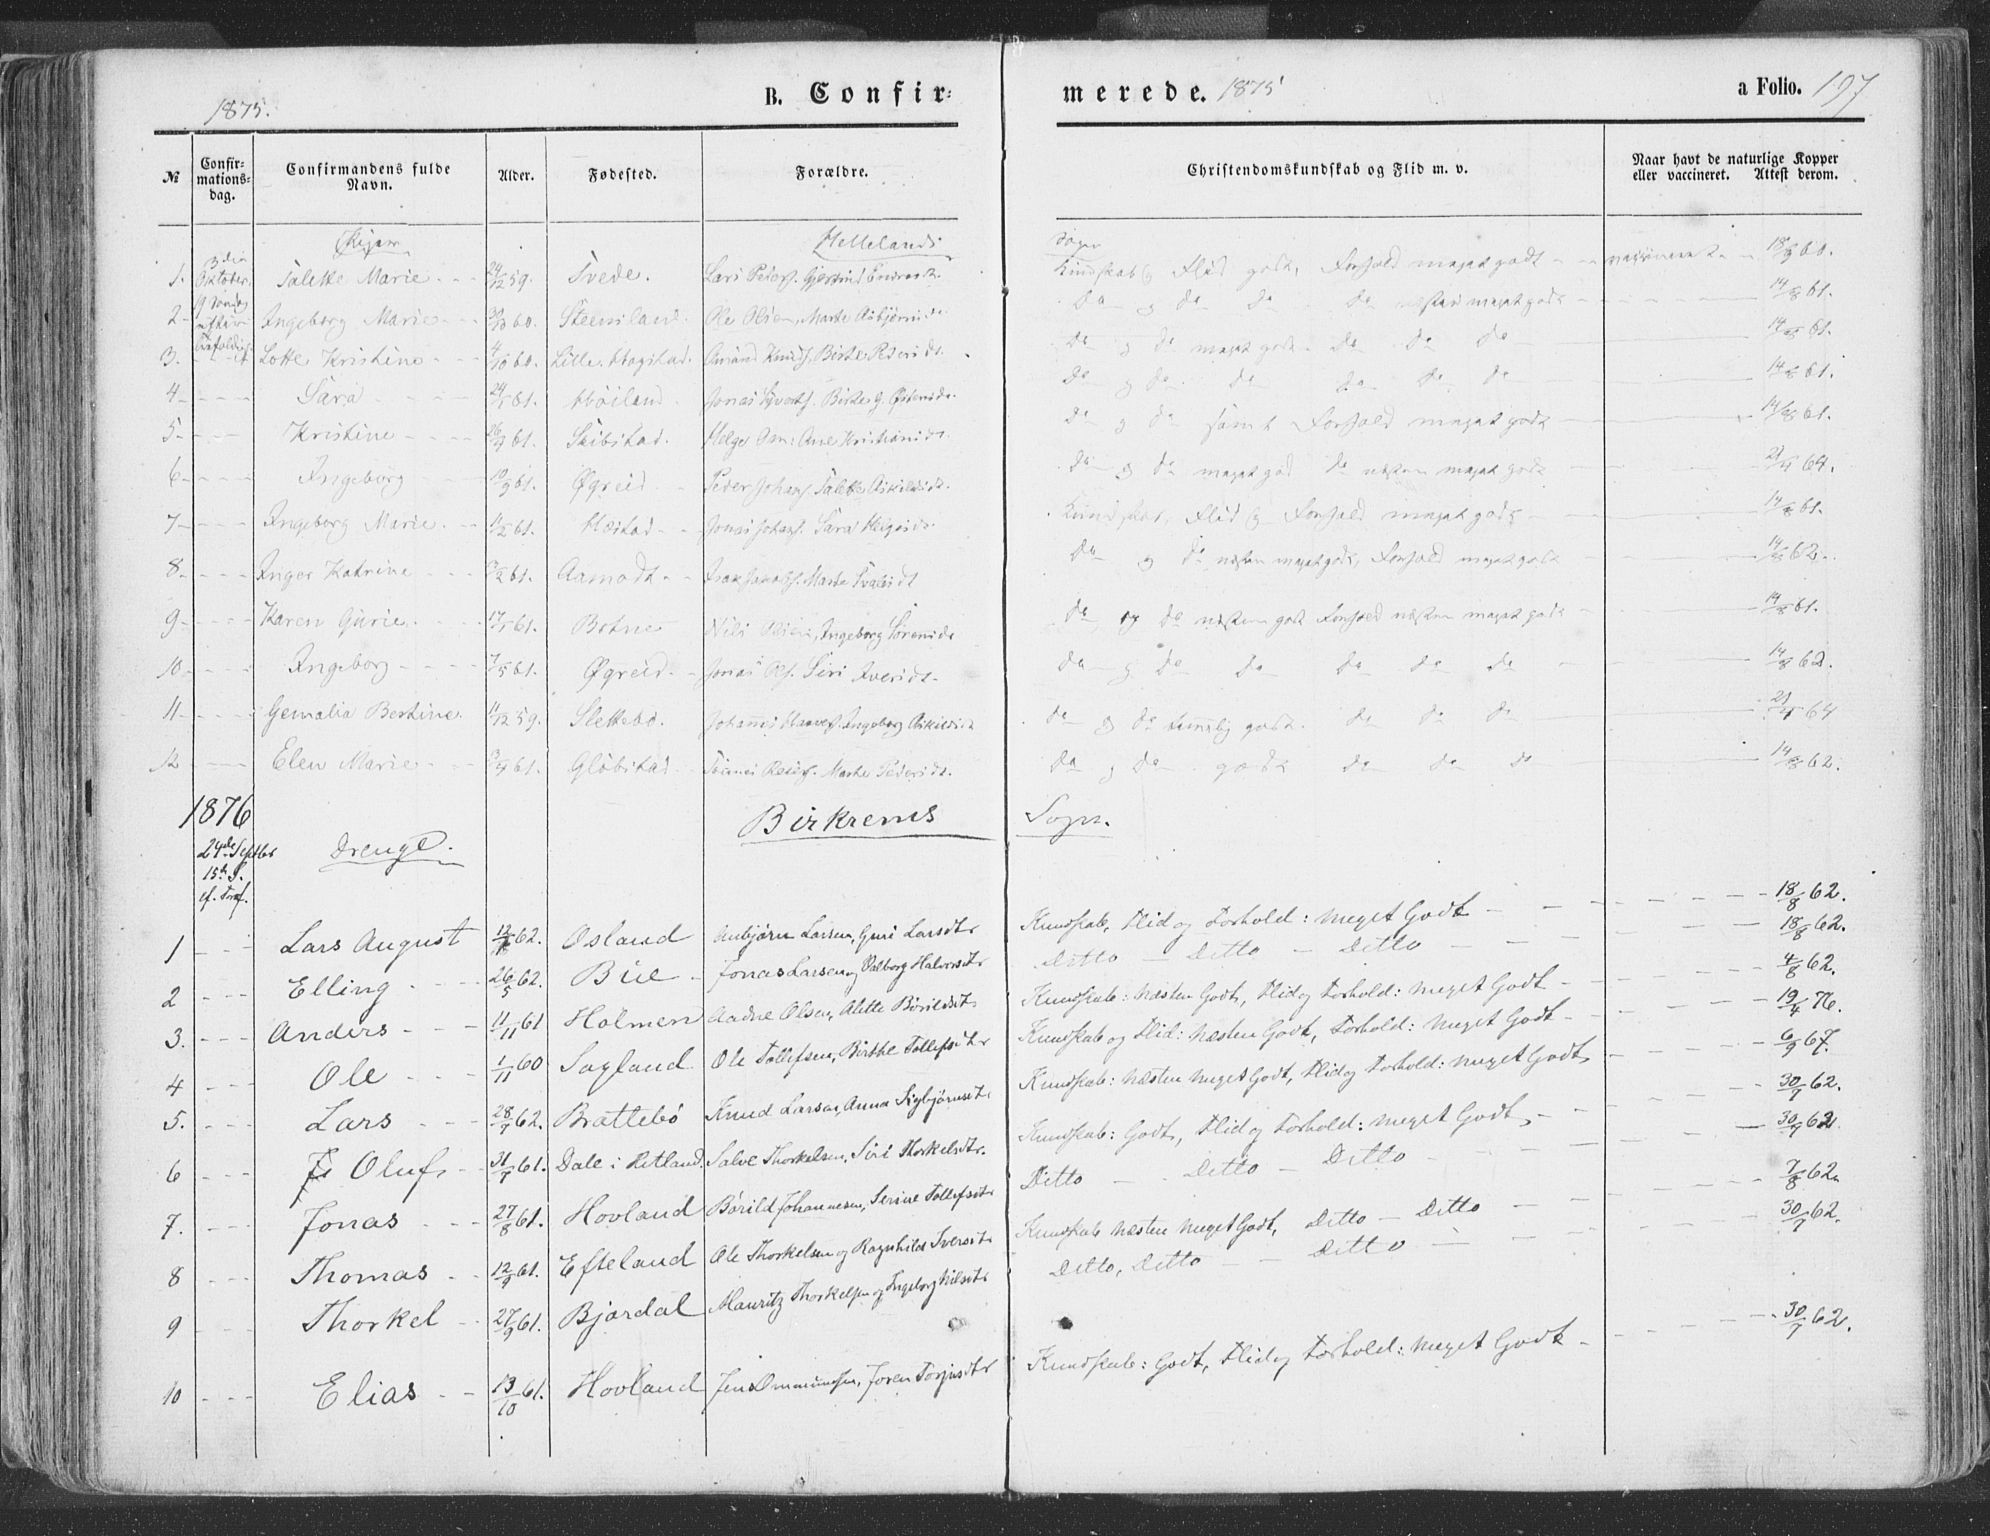 1875.
B. Confir-
merede. 1875
a Folio. 197
№
Confir-
mations-
dag.
Confirmandens fulde
Navn.
Alder.
Fødested.
Forældre.
Christendomskundskab og Flid m. v.
Naar havt de naturlige Kopper
eller vaccineret. Attest derom.
Piger Hellelands Sogn
3die Oktober
19 Søndag efter Trefoldigh.
1. Talette Marie 24/12 59. Tvede. Lars Peders. Gjertrud Endresdt. Kundskab og Flid godt, Forhold meget godt vaccineret 18/9 60.
2 Ingeborg Marie 60. Steensland. Ole Olsen, Marte Asbjørnsdt. Do og do do do næsten meget godt 14/8 61.
3. Lotte Kristine 4/10 60. Lille Hagestad. Amund Knuds. Birte Pedersdt. Do og do meget godt do do do 14/8 61.
4 Sara 24/1 61. Høiland Jonas Siverts. Birte G. Østensdt. Do og do do do do do 14/8 61.
5 Kristine 26/9 61. Skibstad. Helge Ane Kristiansdt. Do og do samt Forhold meget godt 14/8 61.
6 Ingeborg 10/9 61. Øgreid Peder Johans. Talette Askildsdt. Do og do meget god do næsten meget godt 21/4 64.
7 Ingeborg Marie 11/2 61. Hæstad Jonas Johans. Sara Helgesdt. Kundskab, Flid og Forhold meget godt 14/8 61.
8 Inger Katrine 61. Aamodt Isak Jakobs. Marte Do og do næsten meget godt, Forhold meget godt 14/8 62.
9 Karen Gurie 17/1 61. Botne Nils Olsen, Ingeborg Sørensdt. do og do næsten godt Forhold næsten meget godt 14/8 61.
10 Ingeborg 7/5 61. Øgreid Jonas Ols. Siri Iversdt. do og do do do do do 14/8 62.
11 Gemalia Bertine 11/12 59. Slettebø. Johannes Ingeborg Askildsdt do og do temmelig godt. do do do 21/4 64
12 Elen Marie 3/9 61. Gløbstad Peders. Marte Pedersdt. do og do godt do do do 14/8 62.
1876 Birkrems Sogn.
24de Septbr
15de S.
ef. Tref.
Drenge.
1 Lars August 62. Osland Anbjørn Larsen, Guri Larsdtr Kundskab, Flid og Forhold: Meget Godt 18/8 62.
2 Elling 26/5 62. Bue Jonas Larsen og Valborg Halvorsdtr Ditto Ditto Ditto 18/8 62.
3. Anders 11/11 61 Holmen Aadne Olsen, Alette Børildsdt. Kundskab: Næsten Godt, Flid og Forhold: Meget Godt 4/8 62.
4 Ole 1/11 60 Sagland Ole Tollefsen, Birthe Tollefsdtr Kundskab og Flid: Næsten Godt, Forhold: Meget Godt 19/4 76.
5. Lars 28/7 62. Brattebø Knud Larsen, Anna Sigbjørnsdt. Kundskab: Næsten Meget Godt, Flid og Forhold: Meget Godt 6/9 67.
6 Oluf 31/7 61. Dale i Hetland Salve Thorkelsen, Siri Thorkelsdtr. Kundskab: Godt, Flid og Forhold: Meget Godt 30/7 62.
7. Jonas 27/8 61. Hovland Børild Johannesen, Serine Tollefsdtr Ditto Ditto Ditto 30/7 62
8 Thomas 12/9 61. Efteland Ole Thorkelsen og Ragnhild Iversdt. Kundskab Næsten Meget Godt, Ditto Ditto 7/8 62.
9 Thorkel 27/9 61. Bjordal Mauritz Thorkelsen og Ingeborg Nilsdtr Ditto, Ditto Ditto 30/7 62.
10 Elias 13/10 61. Hovland Jens Ommundsen, Joren Torjusdtr Kundskab: Godt, Flid og Forhold: Meget Godt 30/7 62.